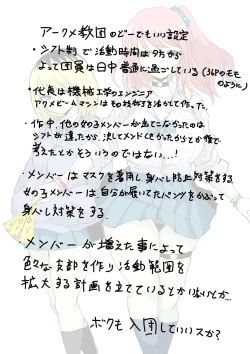 アークメ教団のどーでもいい設定
・シフト制で活動時間は夕方から
よって団員は日中普通に過ごしている
・代表は機械工学のエンジニア
アクメビームマシンはその技術を活かして作った。
・作中、他の女の子メンバーが出てこなかったのは
シフトが違ったから、決してメンドくさかったからとか後で
考えたとかそういうのではない…！
・メンバーはマスクを着用し身バレ防止対策をする
女の子メンバーは自分が履いてたパンツをかぶって
身バレ対策をする
・メンバーが増えた事によって
色々な支部を作り活動範囲を
拡大する計画を立てているとかいないとか…
ボクも入団していいスか？